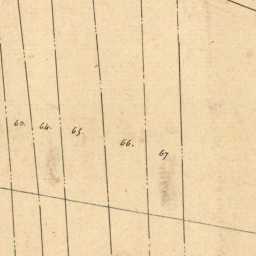 60. 64. 65. 66. 67